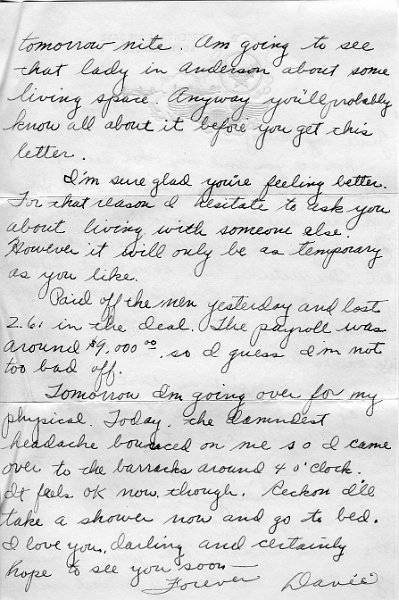 tomorrow nite. Am going to see
that lady in Anderson about some
living space. Anyway you'll probably
know all about it before you get this
letter.
I'm sure glad you're feeling better.
For that reason I hesitate to ask you
about living with someone else.
However it will only be as temporary
as you like.
Paid off the men yesterday and lost
2.61 in the deal. The payroll was
around $9,000.00, so I guess I'm not
too bad off.
Tomorrow I'm going over for my
physical. Today, the damndest
headache bounced on me so I came
over to the barracks around 4 o'clock.
It feels OK now, though. Reckon I'll
take a shower now and go to bed.
I love you, darling and certainly
hope to see you soon—
Forever Davie